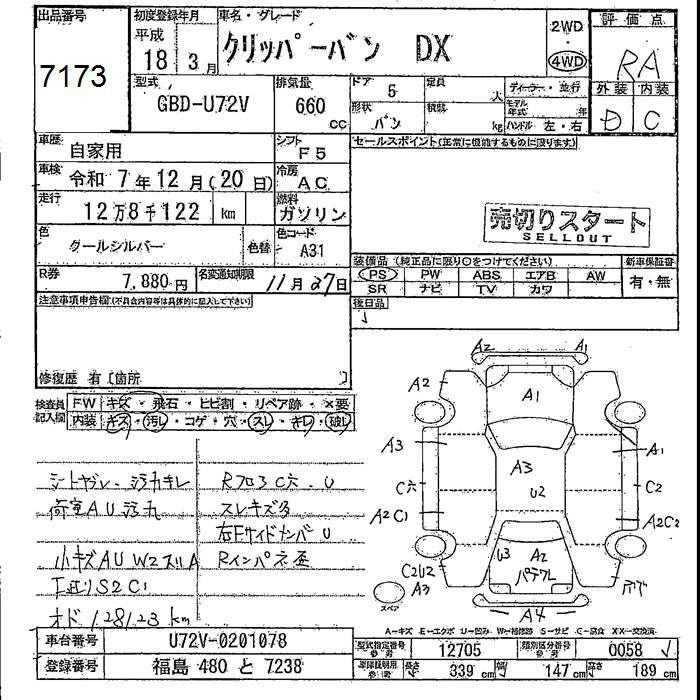 出品番号
7173
初度登録年月
平成
18 3月
車名・グレード
クリッパーバン DX
2WD
4WD
評価点
RA
外装 内装
D C
型式
GBD-U72V
排気量
660 cc
ドア 5
定員 人
形状 バン
積載 kg
ディーラー・並行
モデル年式 年
ハンドル 左・右
車歴
自家用
シフト
F5
セールスポイント(正常に機能するものに限ります)
車検
令和 7年12月(20日)
冷房
AC
走行
12万8千122 km
燃料
ガソリン
売切りスタート
SELLOUT
色
クールシルバー
色替
色コード
A31
装備品(純正品に限り○をつけてください)
新車保証書
PS PW ABS エアB AW
SR ナビ TV カワ
有・無
R券
7,880円
名変通知期限
11月27日
後日品
注意事項申告欄(不具合内容等は具体的に記入して下さい)
修復歴 有〔箇所 〕
検査員記入欄
FW キズ・飛石・ヒビ割・リペア跡・×要
内装 キズ・汚レ・コゲ・穴・スレ・キレ・破レ
シートヤブレ・汚れキレ
荷室AU汚れ
小キズAU W2スリA
下廻りS2C1
オド128123km
RフロアC穴・U
スレキズ多
右Fサイドメンバー U
Rインパネ歪
A2 A1
A2
A1
A3
A1
A3
C穴
U2
C2
A2C1
A2C2
U3 A2
パテワレ
C2U2
A3
スペア
A4
A-キズ E-エクボ U-凹み W-補修跡 S-サビ C-腐食 XX-交換済
車台番号
U72V-0201078
登録番号
福島 480 と 7238
型式指定番号
12705
類別区分番号
0058
長さ 339cm 幅 147cm 高さ 189cm